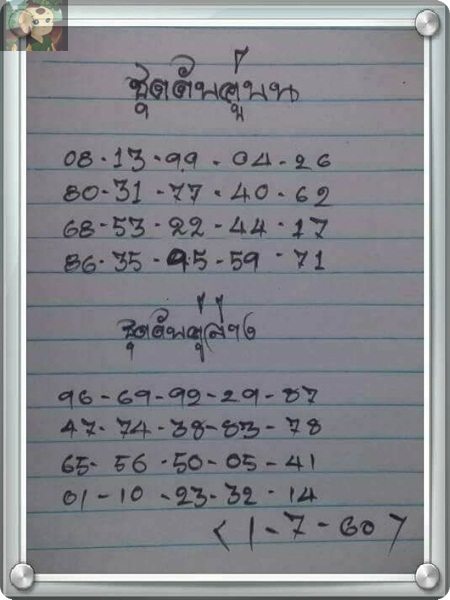 ชุดดับคู่บน
08-13-99-04-26
80-31-77-40-62
68-53-22-44-17
86-35-95-59-71
ชุดดับคู่ล่าง
96-69-92-29-87
47-74-38-83-78
65-56-50-05-41
01-10-23-32-14
(1-7-60)